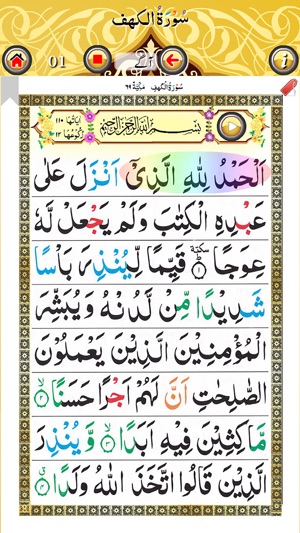 سُوْرَةُ الكهف
01
سُوْرَةُ الْكَهْفِ مَكِّيَّةٌ ٦٩
اٰيَاتُهَا ١١٠
رُكُوْعُهَا ١٢
بِسْمِ اللهِ الرَّحْمٰنِ الرَّحِيْمِ
اَلْحَمْدُ لِلّٰهِ الَّذِیْۤ اَنْزَلَ عَلٰى
عَبْدِهِ الْكِتٰبَ وَلَمْ يَجْعَلْ لَّهٗ
عِوَجًا ؕ۱ قَيِّمًا لِّيُنْذِرَ بَاْسًا
شَدِيْدًا مِّنْ لَّدُنْهُ وَيُبَشِّرَ
الْمُؤْمِنِيْنَ الَّذِيْنَ يَعْمَلُوْنَ
الصّٰلِحٰتِ اَنَّ لَهُمْ اَجْرًا حَسَنًا ۙ۲
مَّاكِثِيْنَ فِيْهِ اَبَدًا ۙ۳ وَّيُنْذِرَ
الَّذِيْنَ قَالُوا اتَّخَذَ اللّٰهُ وَلَدًا ۗ۴